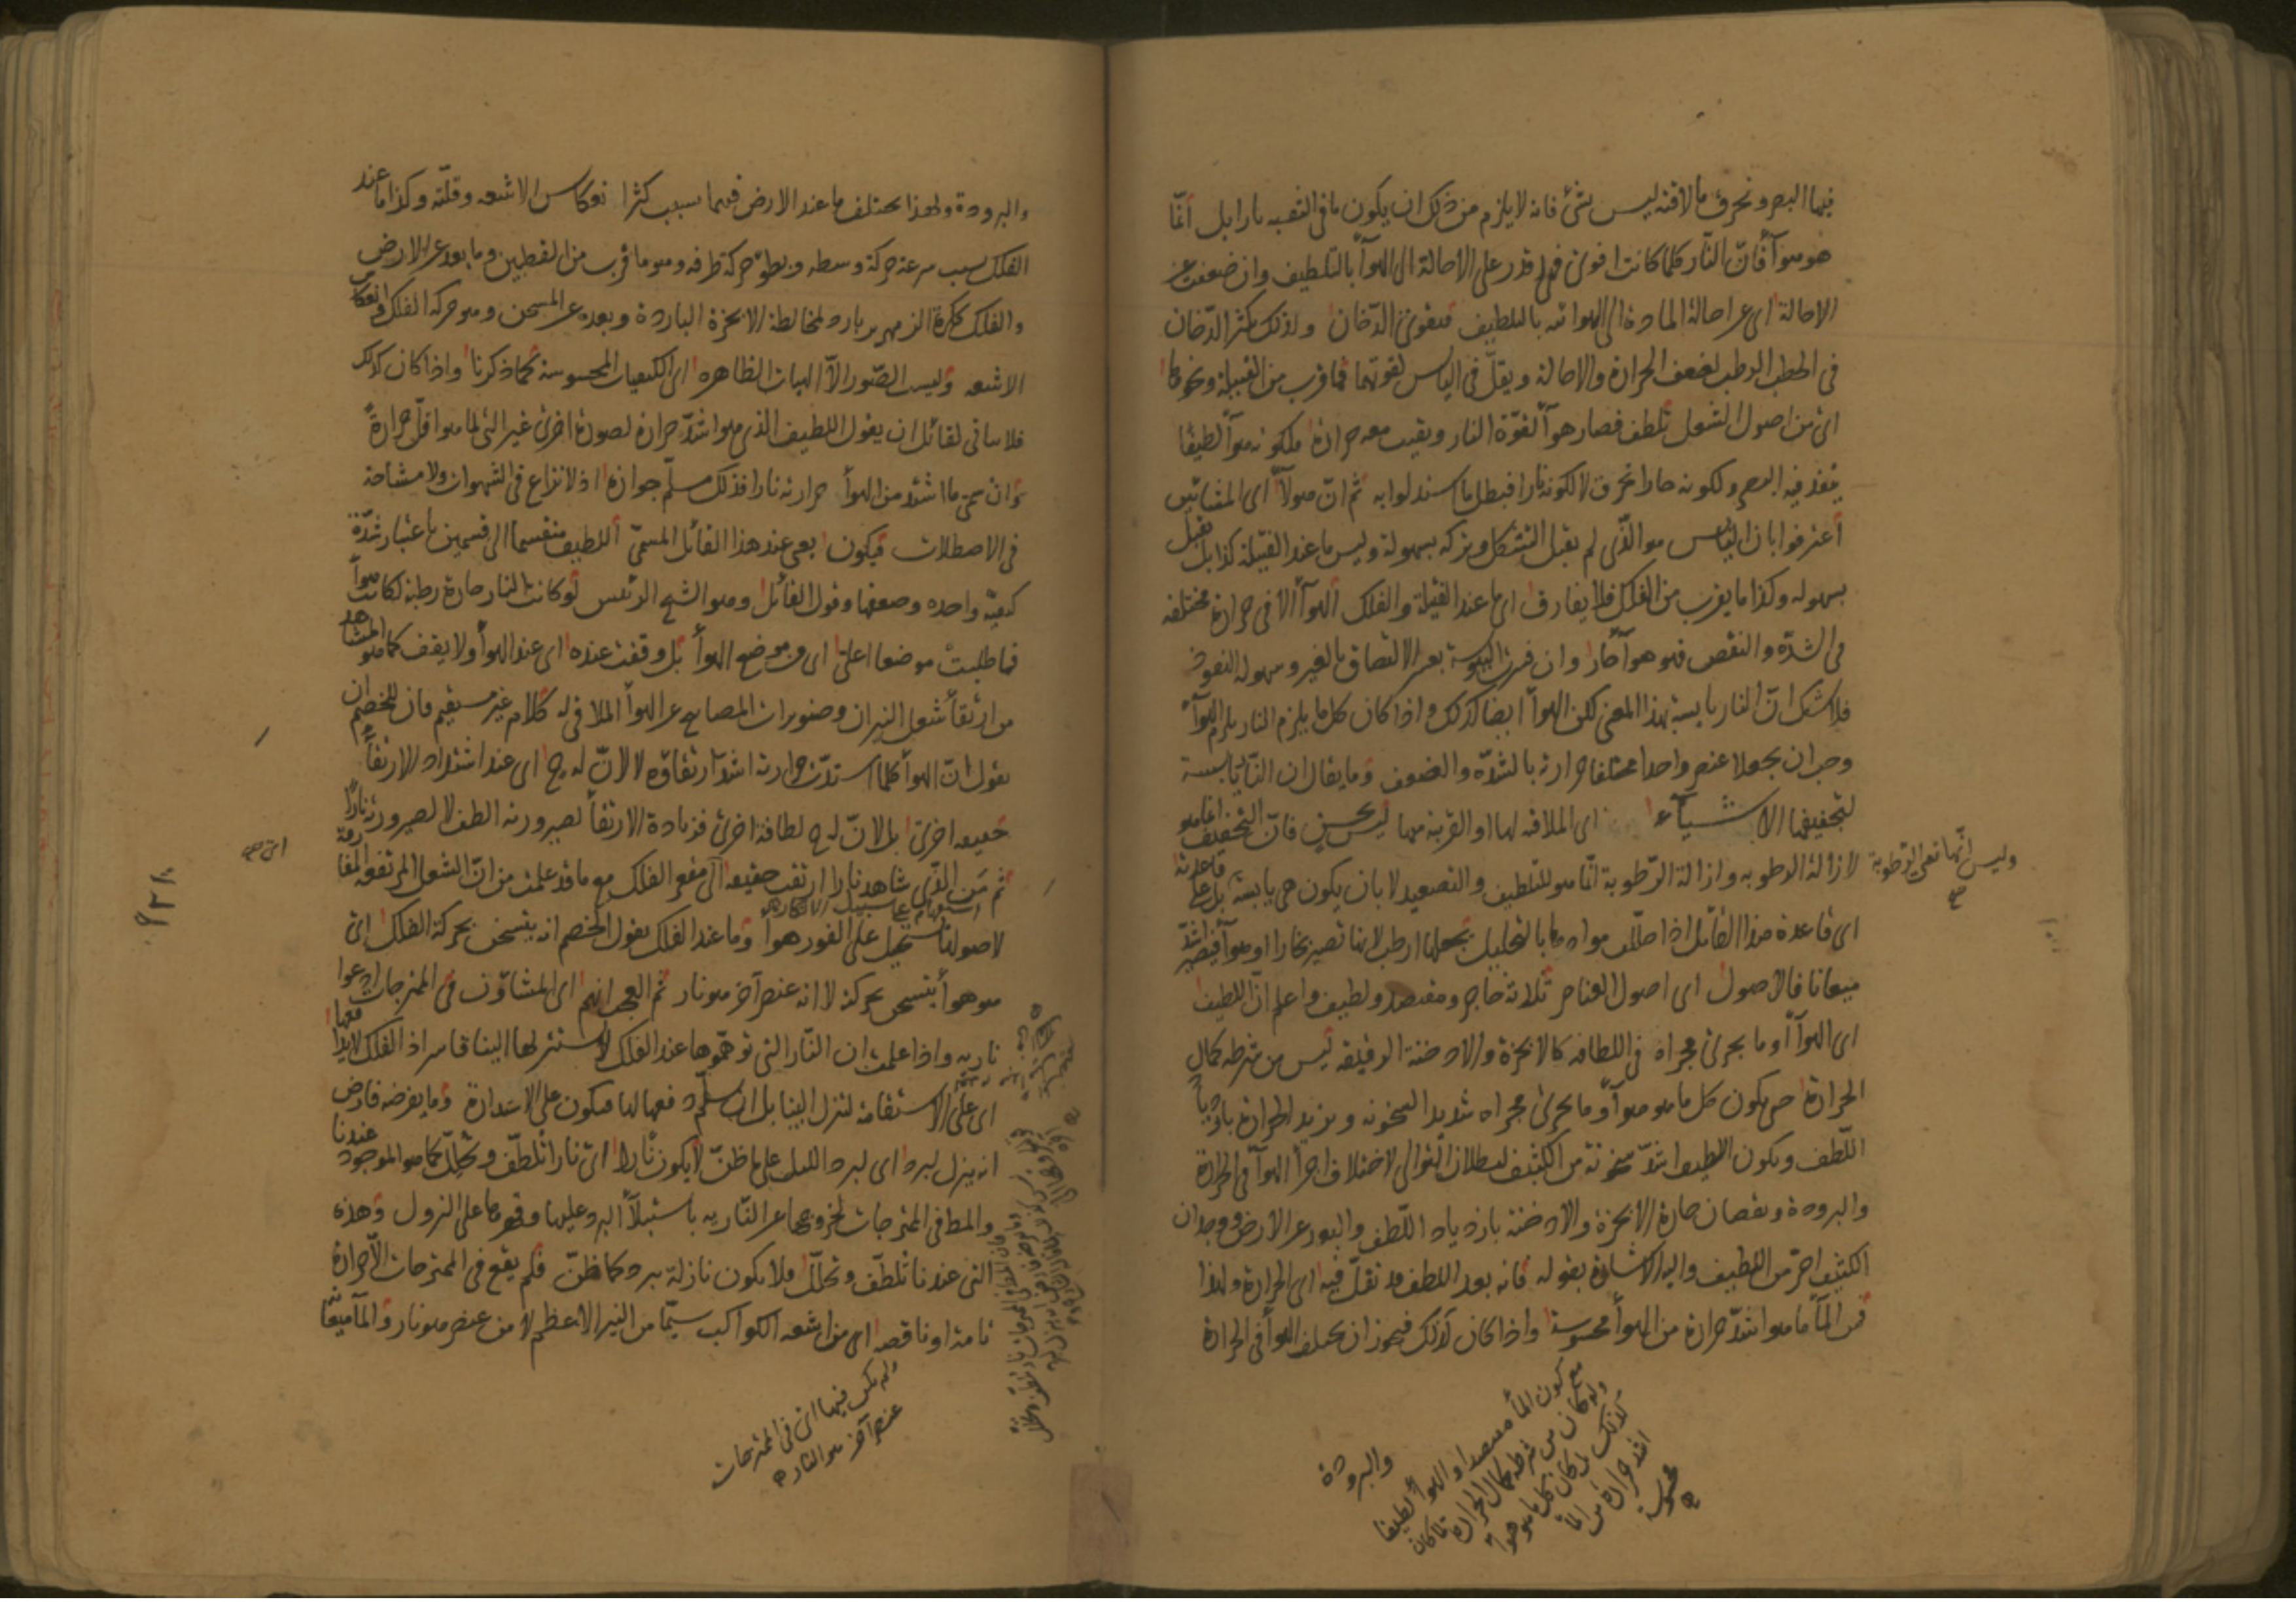 فيها البصر وتحرق ما لاقته ليس بشئ فانه لا يلزم من ذلك ان يكون ما فى الثقبه نارا بل انّما
هو هوآ فانّ النّار كلما كانت اقوى فهى اقدر على الاحالة الى الهوآ بالتلطيف وان ضعفت عن
الاحالة اى عن احالة المادة الى الهوائيه بالتلطيف فيقوى الدّخان ولذلك يكثر الدّخان
فى الحطب الرطب لضعف الحرارة والاحالة ويقلّ فى اليابس لقوتهما فما قرب من الفتيلة ونحوها
اى من اصول الشعل تلطف فصار هوآ لقوّة النار وبقيت معه حرارة فلكونه هوآ لطيفا
ينفذ فيه البصر ولكونه حارا تحرق لا لكونه نارا فبطل ما استدلوا به ثم انّ هولآ اى المشائين
اعترفوا بان اليابس هو الذى لم يقبل التشكل وتركه بسهولة وليس ما عند الفتيلة كذا بل يقبل
بسهوله وكذا ما يقرب من الفلك فلا يفارق اى ما عند الفتيلة والفلك الهوآ الا فى حرارة مختلفه
فى الشدّة والنقص فهو هوآ حار وان فسرت اليبوسة بعسر الالتصاق بالغير وسهوله النفوذ
فلا شك انّ النار يابسة بهذا المعنى لكن الهوآ ايضا كذلك واذا كان كل ما يلزم النار يلزم الهوآ
وجب ان يجعلا عنصرا واحدا مختلفا حرارته بالشدّه والضعف وما يقال ان النّار يابسة
لتجفيفها الاشيآء اى الملاقيه لها او القريبة منها ليس بحسن فانّ التجفيف انما هو
لازالة الرطوبه وازالة الرّطوبة انّما هو للتلطيف والتصعيد لا بان يكون هى يابسة بل على قاعدته
وليس انّها تعنى الرّطوبة صح
اى قاعدة هذا القائل اذا حلّلت موادها بالتحليل تجعلها ارطب لانها تصير بخارا او هوآ فيصير اشدّ
ميعانا فالاصول اى اصول العناصر ثلاثة حاجز ومقتصد ولطيف واعلم انّ اللطيف
اى الهوآ او ما يجرى مجراه فى اللطافه كالابخرة والادخنة الرقيقه ليس من شرطه كمال
الحرارة حتى يكون كل ما هو هوآ وما يجرى مجراه شديد السخونه ويزيد الحرارة بازدياد
اللّطف ويكون اللطيف اشدّ سخونة من الكثيف لبطلان التوالى لاختلاف اجزآ الهوآ فى الحرارة
والبرودة ونقصان حرارة الابخرة والادخنة بازدياد اللّطف والبعد عن الارض ووجدان
الكثيف احرّ من اللطيف واليه الاشارة بقوله فانه بعد اللطف قد تقلّ فيه اى الحرارة ولهذا
فمن المآ ما هو اشدّ حرارة من الهوآ محسوسة واذا كان كذلك فيجوز ان يختلف الهوآ فى الحرارة
والبرودة
مع كون المآ مقتصدا والهوآ لطيفا
ولو كان من شرطه كمال الحرارة لما كان
كذلك لكان كل ما هو هوآ
اشد حرارة من المآ
محسوسة صح
والبرودة ولهذا يختلف ما عند الارض فيهما بسبب كثرة انعكاس الاشعه وقلّته وكذا ما عند
الفلك بسبب سرعة حركة وسطه وبطؤ حركة طرفه وهو ما قرب من القطبين وما بعد عن الارض
والفلك ككرة الزمهرير بارد لمخالطة الابخرة الباردة وبعده عن المسخن وهو حركة الفلك وانعكاس
الاشعه وليست الصّور الّا الهيات الظاهره اى الكيفيات المحسوسة كما ذكرنا واذا كان كذلك
فلا يتأتى لقائل ان يقول اللطيف الذى هو اشدّ حرارة لصورة اخرى غير التى لما هو اقلّ حرارةً
وان سمّى ما اشتد من الهوآ حرارته نارا فذلك مسلّم جوازه اذ لا نزاع فى الشهوات ولا مشاحة
فى الاصطلاحات فيكون يعنى عند هذا القائل المسمّى اللطيف منقسما الى قسمين باعتبار شدّة
كيفيّة واحده وضعفها وقول القائل وهو الشيخ الرئيس لو كانت النار حارة رطبة لكانت هوآ
فما طلبت موضعا اعلى اى من موضع الهوآ بل وقفت عنده اى عند الهوآ ولا يقف كما هو المشاهد
من ارتقآ شعل النيران وصنوبرات المصابيح عن الهوآ الملاقى له كلام غير مستقيم فان للخصم ان
يقول انّ الهوآ كلما اشتدّت حرارته اشتدّ ارتقاؤه لا لانّ له ح اى عند اشتداد الارتقآ
حقيقه اخرى بل لانّ له ح لطافة اخرى فزيادة الارتقآ لصيرورته الطف لا لصيرورته نارًا
ثم مَن الذى شاهد نارا ارتقت حقيقه الى مقعر الفلك مع ما قد علمت من انّ الشعل المرتفعه المفارقة
استفهام على سبيل الانكار
اى
لاصولها تستحيل على الفور هوآ وما عند الفلك يقول الخصم انه يتسخن بحركة الفلك اى
هو هوآ يتسخن بحركته لا انه عنصر آخر هو نار ثم العجب انهم اى المشاؤن فى الممتزجات ادعوا
ناريه واذا علمت ان النّار التى توهّموها عند الفلك لا يستنزلها الينا قاسر اذ الفلك لا يدافعها
اى على الاستقامة لتنزل الينا بل ان سلّم دفعها لها فيكون على الاستدارة وما يفرضه فارض
انه ينزل لبرد اى لبرد الليل على ما ظنّ لا يكون نارا اى نارا تلطّف وتحلّل كما هو الموجود عندنا
والمط فى الممتزجات لخروجها عن النّاريه باستيلآ البرد عليها وقهرها على النزول وهذه
التى عندنا تلطّف وتحلّل فلا يكون نازلة ببرد كما ظنّ فلم يقع فى الممتزجات الّا حرارة
تامة او ناقصه اى من اشعه الكواكب سيّما من النير الاعظم لا من عنصر هو نار والمآ ميعانه
ولم يكن فيها اى فى الممتزجات
عنصر آخر هو النار صح